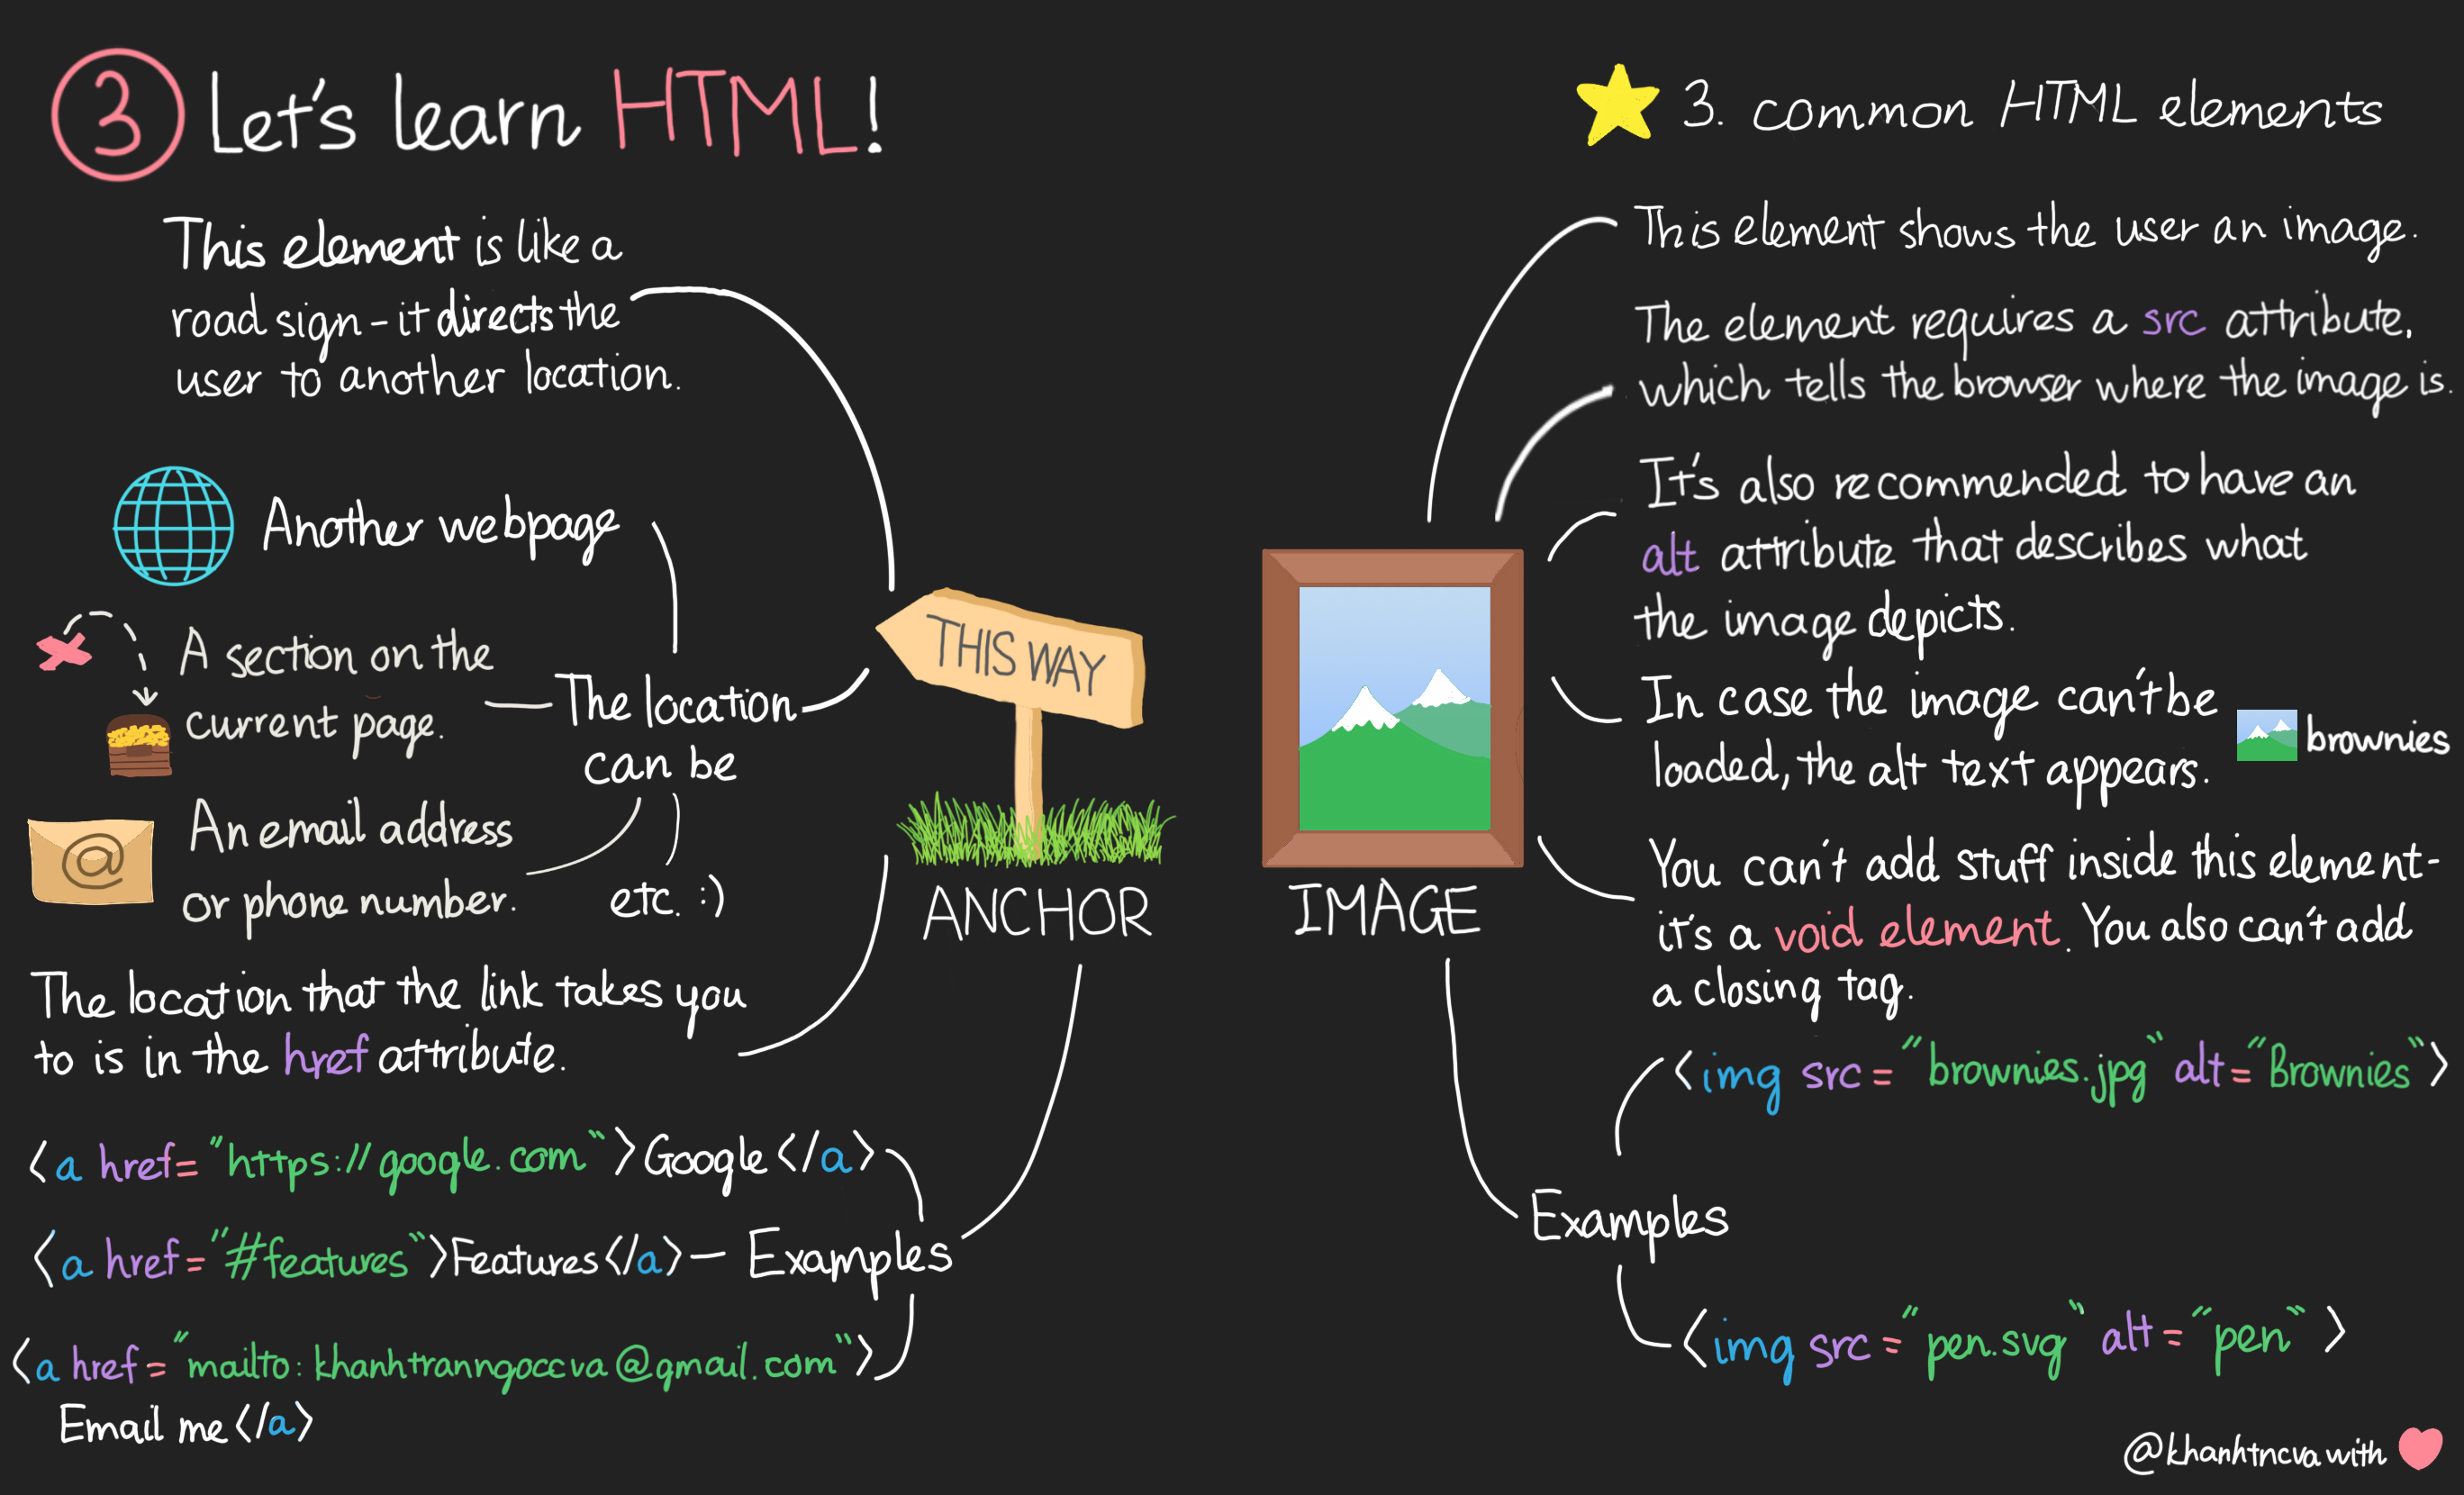 3 Let's learn HTML!
3. common HTML elements
This element is like a
road sign - it directs the
user to another location.
Another webpage
A section on the
current page.
An email address
or phone number.
The location
can be
etc. :)
THIS WAY
ANCHOR
The location that the link takes you
to is in the href attribute.
<a href="https://google.com">Google</a>
<a href="#features">Features</a>
Examples
<a href="mailto:khanhtranngoccva@gmail.com">
Email me</a>
This element shows the user an image.
The element requires a src attribute,
which tells the browser where the image is.
It's also recommended to have an
alt attribute that describes what
the image depicts.
In case the image can't be
loaded, the alt text appears.
brownies
You can't add stuff inside this element-
it's a void element. You also can't add
a closing tag.
IMAGE
<img src="brownies.jpg" alt="Brownies">
Examples
<img src="pen.svg" alt="pen">
@khanhtncva with